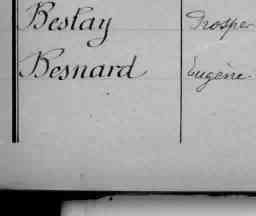 Beslay Prosper
Besnard Eugène